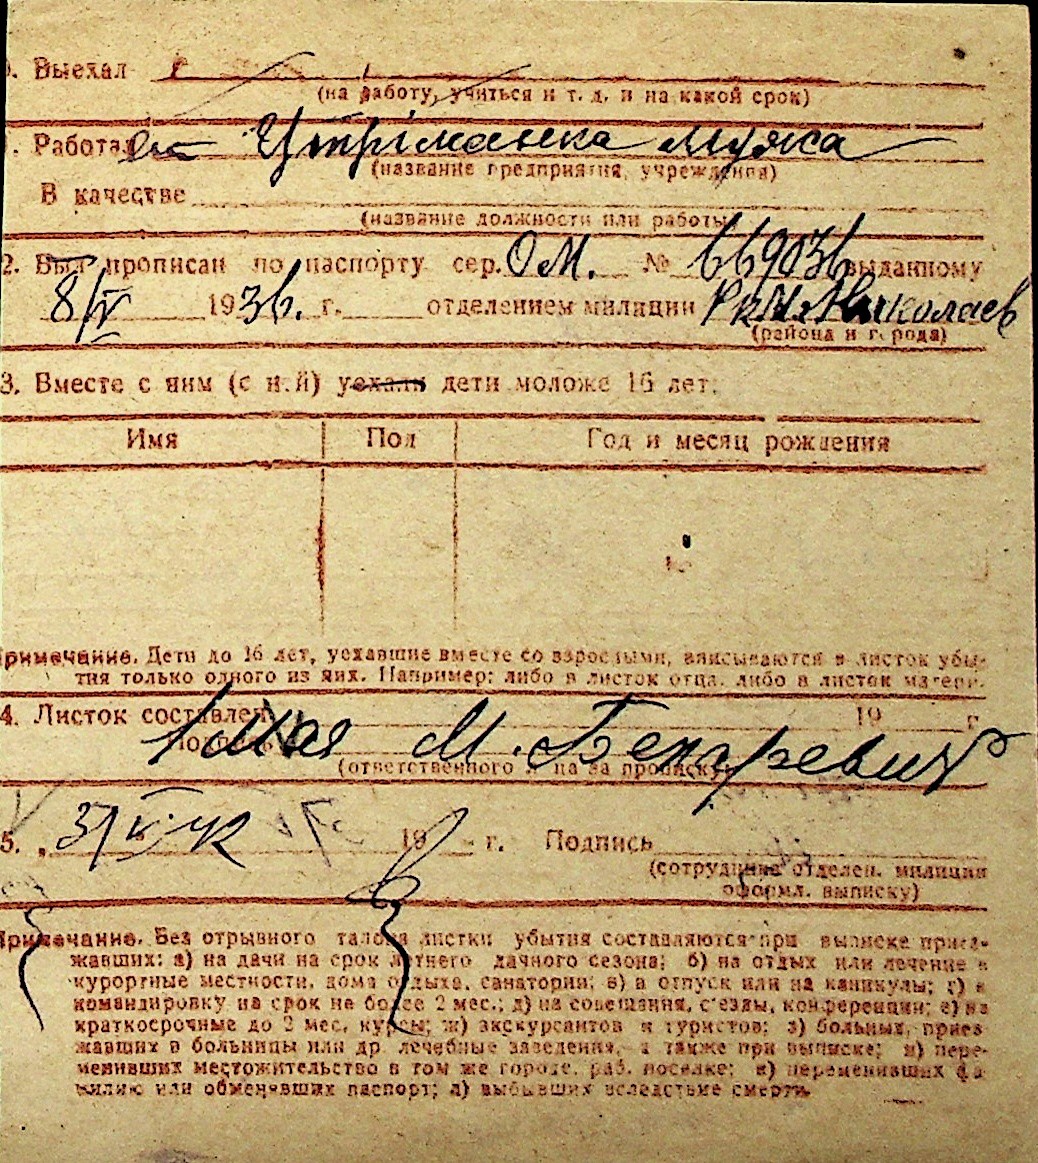 . Выехал
(на работу, учиться и т. д. и на какой срок)
. Работал Утріманка мужа
(название предприятия, учреждения)
В качестве
(название должности или работы
2. Был прописан по паспорту сер. ОМ. № 669036 выданному
8/IV 1936. г. отделением милиции Николаев
(района и города)
3. Вместе с ним (с ней) уехали дети моложе 16 лет:
Имя Пол Год и месяц рождения
Примечание. Дети до 16 лет, уехавшие вместе со взрослыми, вписываются в листок убы-
тия только одного из них. Например: либо в листок отца, либо в листок матери.
4. Листок составлен 19 г.
1 мая М.
Подпись
(ответственного лица за прописку)
5. „ 3/V 19 г. Подпись
(сотрудника отделен. милиции
оформл. выписку)
Примечание. Без отрывного талона листки убытия составляются при выписке приез-
жавших: а) на дачи на срок летнего дачного сезона; б) на отдых или лечение в
курортные местности, дома отдыха, санатории; в) в отпуск или на каникулы; г) в
командировку на срок не более 2 мес.; д) на совещания, съезды, конференции; е) на
краткосрочные до 2 мес. курсы; ж) экскурсантов и туристов; з) больных, приез
жавших в больницы или др лечебные заведения, а также при выписке; и) пере-
менивших местожительство в том же городе, раб. поселке; к) переменивших фа
милию или обменявших паспорт; л) выбывших вследствие смерти.